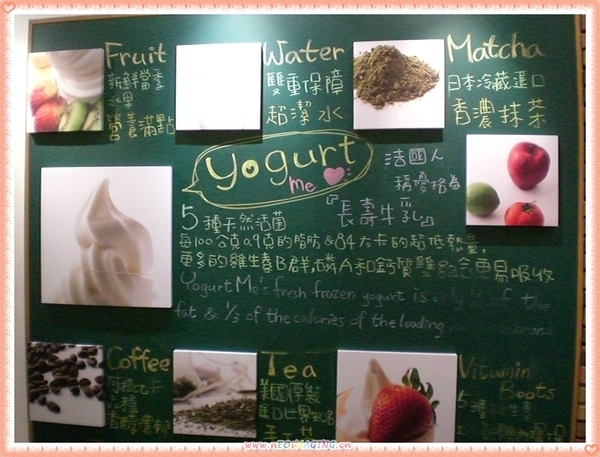 Fruit
新鮮當季
水果
營養滿點
Water
雙重保障
超潔水
Matcha
日本冷藏進口
香濃抹茶
Yogurt
me
法國人
稱優格為
『長壽牛乳』
5種天然活菌
每100公克0.9克的脂肪&84大卡的超低熱量,
更多的維生素B群,磷A和鈣質雙結合更易吸收
YogurtMe's fresh frozen yogurt is only of the
fat & 1/3 of the calories of the leading brand
Coffee
阿拉比卡
Tea
美國原裝
進口世界知名
Vitamin
Boots
5種維生素
www.nEOiMAGING.cn